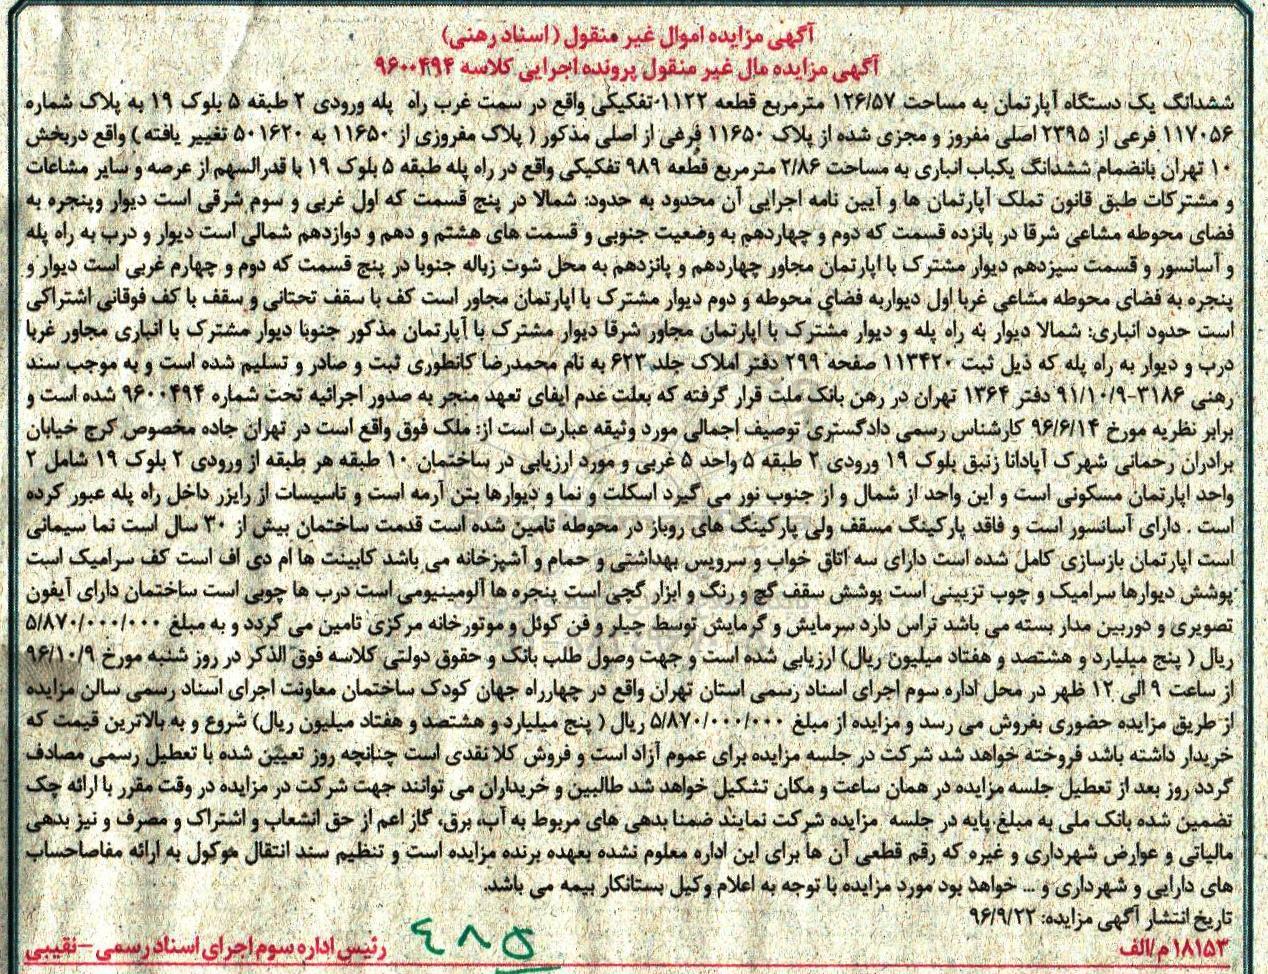 آگهی مزایده اموال غیر منقول (اسناد رهنی)
آگهی مزایده مال غیر منقول پرونده اجرایی کلاسه ۹۶۰۰۴۹۴
ششدانگ یک دستگاه آپارتمان به مساحت ۱۲۶/۵۷ مترمربع قطعه ۱۱۲۲ تفکیکی واقع در سمت غرب راه پله ورودی ۲ طبقه ۵ بلوک ۱۹ به پلاک شماره
۱۱۷۰۵۶ فرعی از ۲۳۹۵ اصلی مفروز و مجزی شده از پلاک ۱۱۶۵۰ فرعی از اصلی مذکور ( پلاک مفروزی از ۱۱۶۵۰ به ۵۰۱۶۲۰ تغییر یافته ) واقع دربخش
۱۰ تهران بانضمام ششدانگ یکباب انباری به مساحت ۲/۸۶ مترمربع قطعه ۹۸۹ تفکیکی واقع در راه پله طبقه ۵ بلوک ۱۹ با قدرالسهم از عرصه و سایر مشاعات
و مشترکات طبق قانون تملک آپارتمان ها و آیین نامه اجرایی آن محدود به حدود: شمالا در پنج قسمت که اول غربی و سوم شرقی است دیوار وپنجره به
فضای محوطه مشاعی شرقا در پانزده قسمت که دوم و چهاردهم به وضعیت جنوبی و قسمت های هشتم و دهم و دوازدهم شمالی است دیوار و درب به راه پله
و آسانسور و قسمت سیزدهم دیوار مشترک با اپارتمان مجاور چهاردهم و پانزدهم به محل شوت زباله جنوبا در پنج قسمت که دوم و چهارم غربی است دیوار و
پنجره به فضای محوطه مشاعی غربا اول دیواربه فضای محوطه و دوم دیوار مشترک با اپارتمان مجاور است کف با سقف تحتانی و سقف با کف فوقانی اشتراکی
است حدود انباری: شمالا دیوار به راه پله و دیوار مشترک با اپارتمان مجاور شرقا دیوار مشترک با آپارتمان مذکور جنوبا دیوار مشترک با انباری مجاور غربا
درب و دیوار به راه پله که ذیل ثبت ۱۱۳۴۲۰ صفحه ۲۹۹ دفتر املاک جلد ۶۲۳ به نام محمدرضا کانطوری ثبت و صادر و تسلیم شده است و به موجب سند
رهنی ۳۱۸۶-۹۱/۱۰/۹ دفتر ۱۳۶۴ تهران در رهن بانک ملت قرار گرفته که بعلت عدم ایفای تعهد منجر به صدور اجرائیه تحت شماره ۹۶۰۰۴۹۴ شده است و
برابر نظریه مورخ ۹۶/۶/۱۴ کارشناس رسمی دادگستری توصیف اجمالی مورد وثیقه عبارت است از: ملک فوق واقع است در تهران جاده مخصوص کرج خیابان
برادران رحمانی شهرک آپادانا زنبق بلوک ۱۹ ورودی ۲ طبقه ۵ واحد ۵ غربی و مورد ارزیابی در ساختمان ۱۰ طبقه هر طبقه از ورودی ۲ بلوک ۱۹ شامل ۲
واحد اپارتمان مسکونی است و این واحد از شمال و از جنوب نور می گیرد اسکلت و نما و دیوارها بتن آرمه است و تاسیسات از رایزر داخل راه پله عبور کرده
است . دارای آسانسور است و فاقد پارکینگ مسقف ولی پارکینگ های روباز در محوطه تامین شده است قدمت ساختمان بیش از ۳۰ سال است نما سیمانی
است اپارتمان بازسازی کامل شده است دارای سه اتاق خواب و سرویس بهداشتی و حمام و آشپزخانه می باشد کابینت ها ام دی اف است کف سرامیک است
پوشش دیوارها سرامیک و چوب تزیینی است پوشش سقف گچ و رنگ و ابزار گچی است پنجره ها آلومینیومی است درب ها چوبی است ساختمان دارای آیفون
تصویری و دوربین مدار بسته می باشد تراس دارد سرمایش و گرمایش توسط چیلر و فن کوئل و موتورخانه مرکزی تامین می گردد و به مبلغ ۵/۸۷۰/۰۰۰/۰۰۰
ریال ( پنج میلیارد و هشتصد و هفتاد میلیون ریال) ارزیابی شده است و جهت وصول طلب بانک و حقوق دولتی کلاسه فوق الذکر در روز شنبه مورخ ۹۶/۱۰/۹
از ساعت ۹ الی ۱۲ ظهر در محل اداره سوم اجرای اسناد رسمی استان تهران واقع در چهارراه جهان کودک ساختمان معاونت اجرای اسناد رسمی سالن مزایده
از طریق مزایده حضوری بفروش می رسد و مزایده از مبلغ ۵/۸۷۰/۰۰۰/۰۰۰ ریال ( پنج میلیارد و هشتصد و هفتاد میلیون ریال) شروع و به بالاترین قیمت که
خریدار داشته باشد فروخته خواهد شد شرکت در جلسه مزایده برای عموم آزاد است و فروش کلا نقدی است چنانچه روز تعیین شده با تعطیل رسمی مصادف
گردد روز بعد از تعطیل جلسه مزایده در همان ساعت و مکان تشکیل خواهد شد طالبین و خریداران می توانند جهت شرکت در مزایده در وقت مقرر با ارائه چک
تضمین شده بانک ملی به مبلغ پایه در جلسه مزایده شرکت نمایند ضمنا بدهی های مربوط به آب، برق، گاز اعم از حق انشعاب و اشتراک و مصرف و نیز بدهی
مالیاتی و عوارض شهرداری و غیره که رقم قطعی آن ها برای این اداره معلوم نشده بعهده برنده مزایده است و تنظیم سند انتقال موکول به ارائه مفاصاحساب
های دارایی و شهرداری و ... خواهد بود مورد مزایده با توجه به اعلام وکیل بستانکار بیمه می باشد.
تاریخ انتشار آگهی مزایده: ۹۶/۹/۲۲
۱۸۱۵۳/م الف
رئیس اداره سوم اجرای اسناد رسمی – نقیبی
۴۸۵